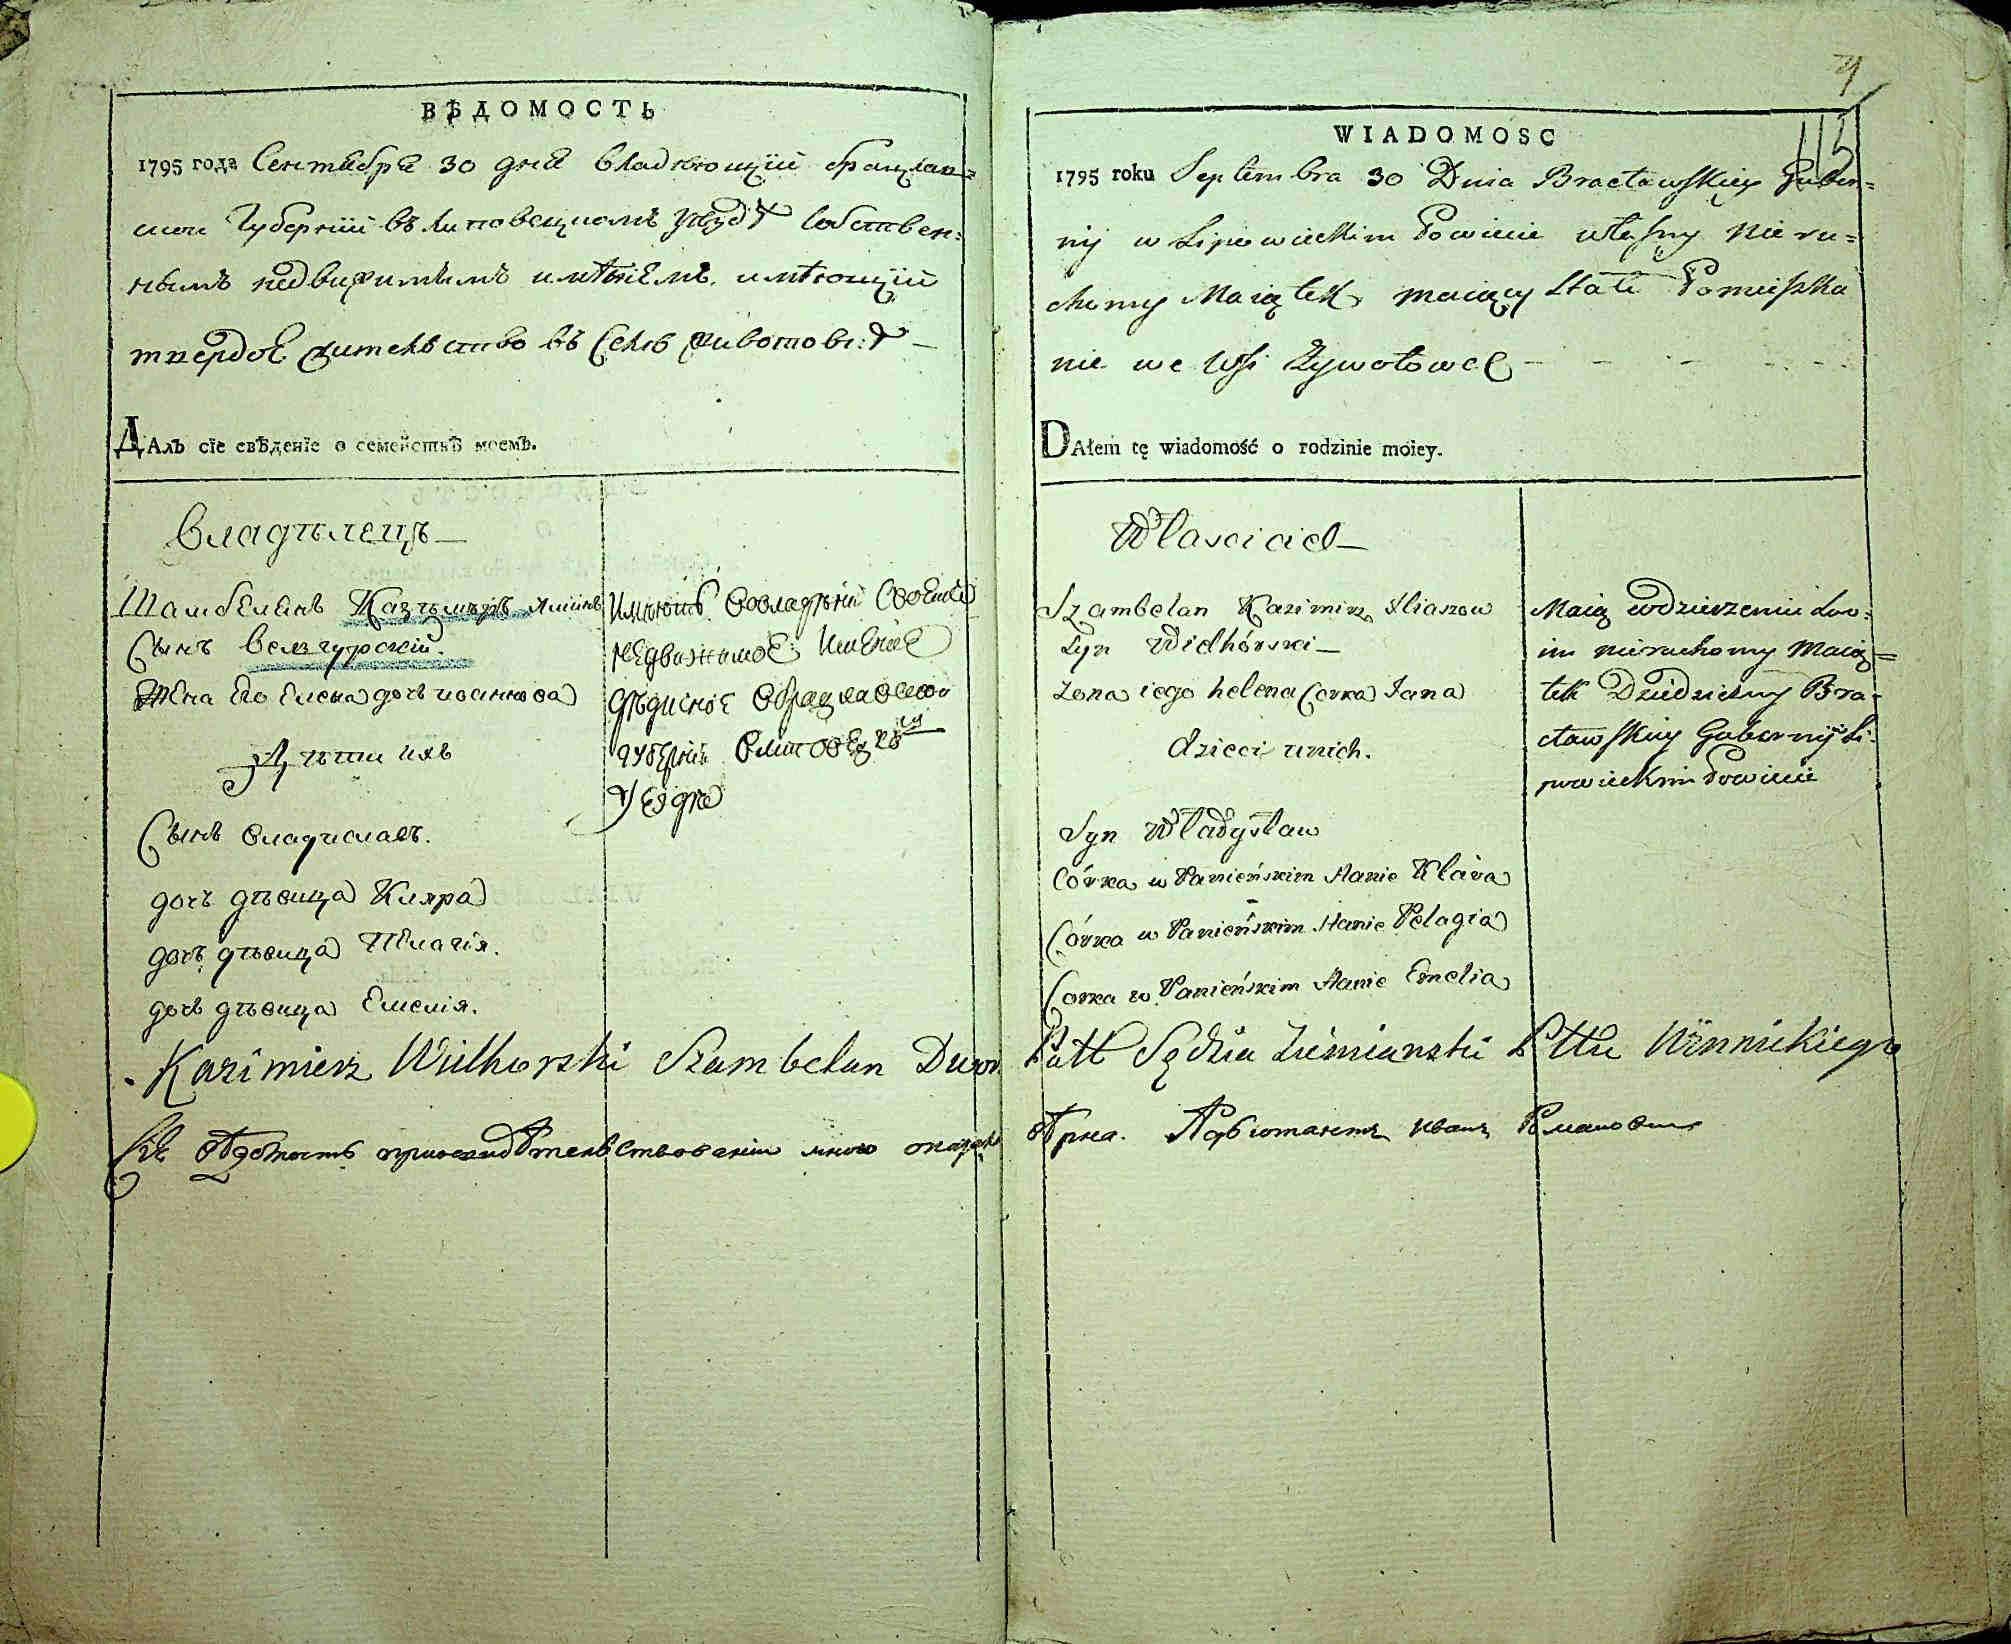 ВѢДОМОСТЬ
1795 года Сентября 30 дня владеющiй брацлав=
ской Губернiи въ Липовецкомъ уездѣ собствен=
нымъ недвижимымъ имѣнiемъ, имѣющiй
твердое жителство въ Селѣ Животовкѣ —
Далъ сïе свѣденïе о семействѣ моемъ.
Владѣлецъ —
Шамбелянъ Казимиръ
Сынъ Велгурскiй.
Жена Его Елена дочь иоаннова
Дѣти ихъ
Сынъ владиславъ.
дочь дѣвица Кляра
дочь дѣвица Пелагiя.
дочь дѣвица Емелiя.
Имѣютъ во владѣнiи своемъ
недвижимое имѣнiе
дѣдисное в брацлавской
губернiи в липовецкомъ
уездѣ
9
113
WIADOMOSC
1795 roku Septembra 30 Dnia Bracławskiey Guber=
nij w Lipowieckim Powiecie własny Nieru=
chomy Maiątek, maiący Stałe Pomieszka
nie we Wsi Żywotowce - - - -
Dałem tę wiadomość o rodzinie moiey.
Własciciel —
Szambelan Kazimierz Eliaszow
Syn Wielhórski —
Zona iego helena Corka Jana
dzieci unich.
Syn Władysław
Córka w Panieńskim Stanie Klara
Córka w Panieńskim Stanie Pelagia
Corka w Panieńskim Stanie Emelia
Maią w dzierzeniu Swo=
im nieruchomy Maią=
tek Dziedziczny Bra-
cławskiey Gubernij Li-
powieckim Powiecie
Kazimierz Wielhorski Szambelan Sędzia Ziemianski Pttu Winnickiego
Сiя вѣдомость при освидѣтелствованiи мною Адъютантъ иванъ